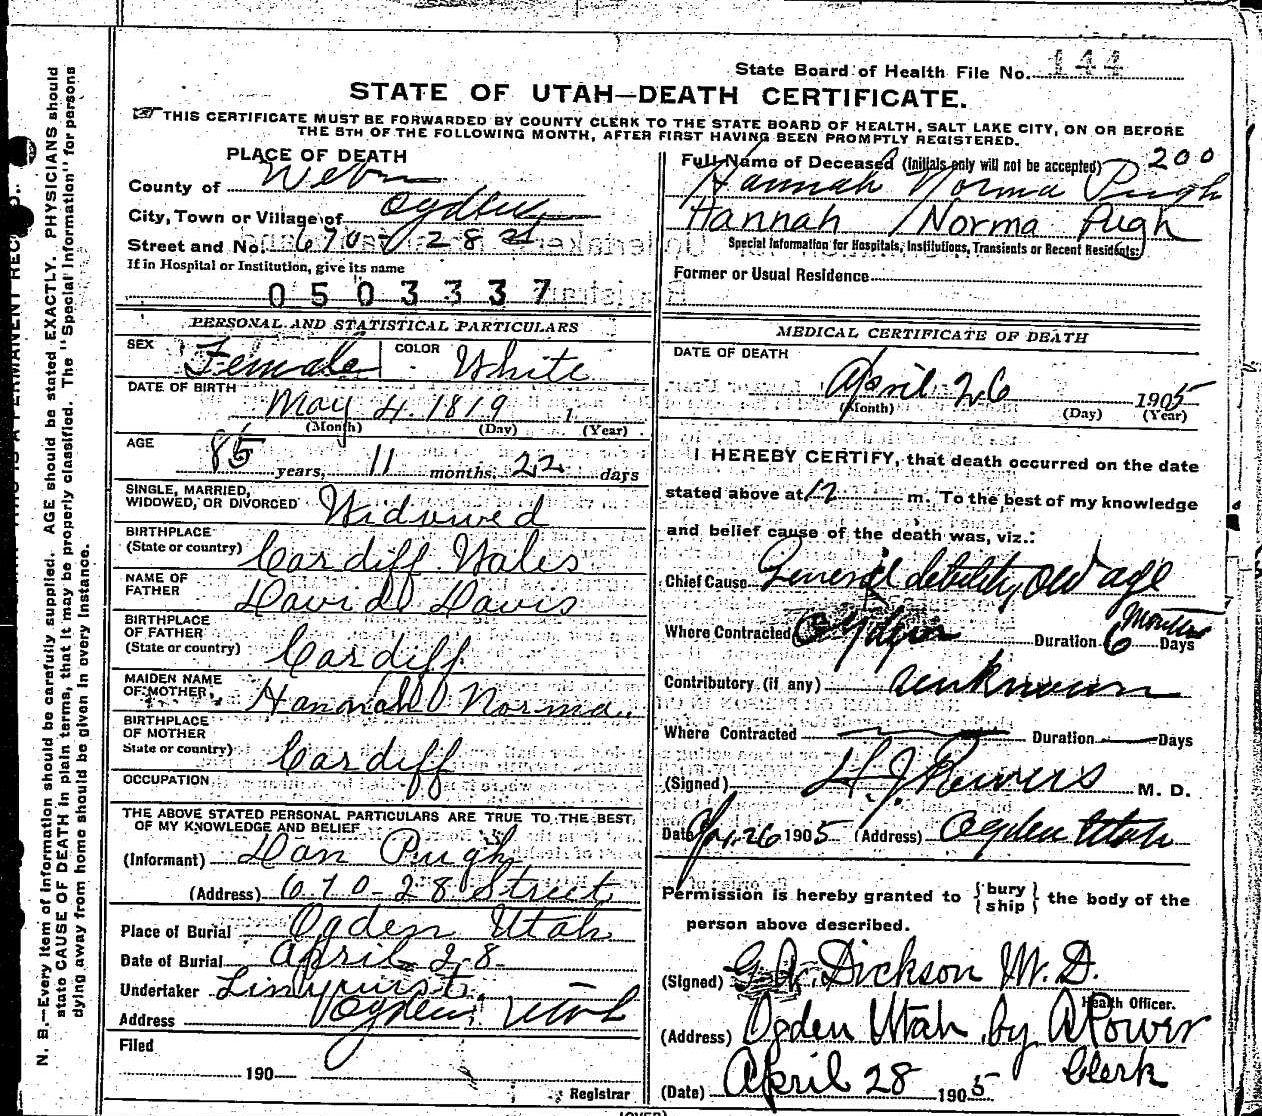 State Board of Health File No. 144
STATE OF UTAH—DEATH CERTIFICATE.
THIS CERTIFICATE MUST BE FORWARDED BY COUNTY CLERK TO THE STATE BOARD OF HEALTH, SALT LAKE CITY, ON OR BEFORE
THE 5TH OF THE FOLLOWING MONTH, AFTER FIRST HAVING BEEN PROMPTLY REGISTERED.
PLACE OF DEATH
County of Weber
City, Town or Village of Ogden
Street and No. 670 - 28 st
If in Hospital or Institution, give its name
0503337
PERSONAL AND STATISTICAL PARTICULARS
SEX Female COLOR White
DATE OF BIRTH
May 4. 1819
(Month) (Day) (Year)
AGE 85 years, 11 months, 22 days
SINGLE, MARRIED,
WIDOWED, OR DIVORCED Widowed
BIRTHPLACE
(State or country) Cardiff Wales
NAME OF
FATHER David Davis
BIRTHPLACE
OF FATHER
(State or country) Cardiff
MAIDEN NAME
OF MOTHER, Hannah Norma
BIRTHPLACE
OF MOTHER
State or country) Cardiff
OCCUPATION
THE ABOVE STATED PERSONAL PARTICULARS ARE TRUE TO THE BEST
OF MY KNOWLEDGE AND BELIEF
(Informant) Dan Pugh
(Address) 670-28 Street
Place of Burial Ogden Utah
Date of Burial April 28
Undertaker Linquist
Address Ogden, Utah
Filed
190
Registrar
200
Full Name of Deceased (Initials only will not be accepted)
Hannah Norma Pugh
Hannah Norma Pugh
Special Information for Hospitals, Institutions, Transients or Recent Residents:
Former or Usual Residence
MEDICAL CERTIFICATE OF DEATH
DATE OF DEATH
April 26 1905
(Month) (Day) (Year)
I HEREBY CERTIFY, that death occurred on the date
stated above at 12 m. To the best of my knowledge
and belief cause of the death was, viz.:
Chief Cause General debility, old age
Where Contracted Ogden Duration 6 Months Days
Contributory (if any) unknown
Where Contracted Duration Days
(Signed) H. J. Powers M. D.
Date Apr. 26 1905 (Address) Ogden Utah
Permission is hereby granted to {bury
ship} the body of the
person above described.
(Signed) G. A. Dickson M. D.
Health Officer.
(Address) Ogden Utah by A Power
Clerk
(Date) April 28 1905
(OVER)
N. B.—Every item of information should be carefully supplied. AGE should be stated EXACTLY. PHYSICIANS should
state CAUSE OF DEATH in plain terms, that it may be properly classified. The "Special Information" for persons
dying away from home should be given in every instance.